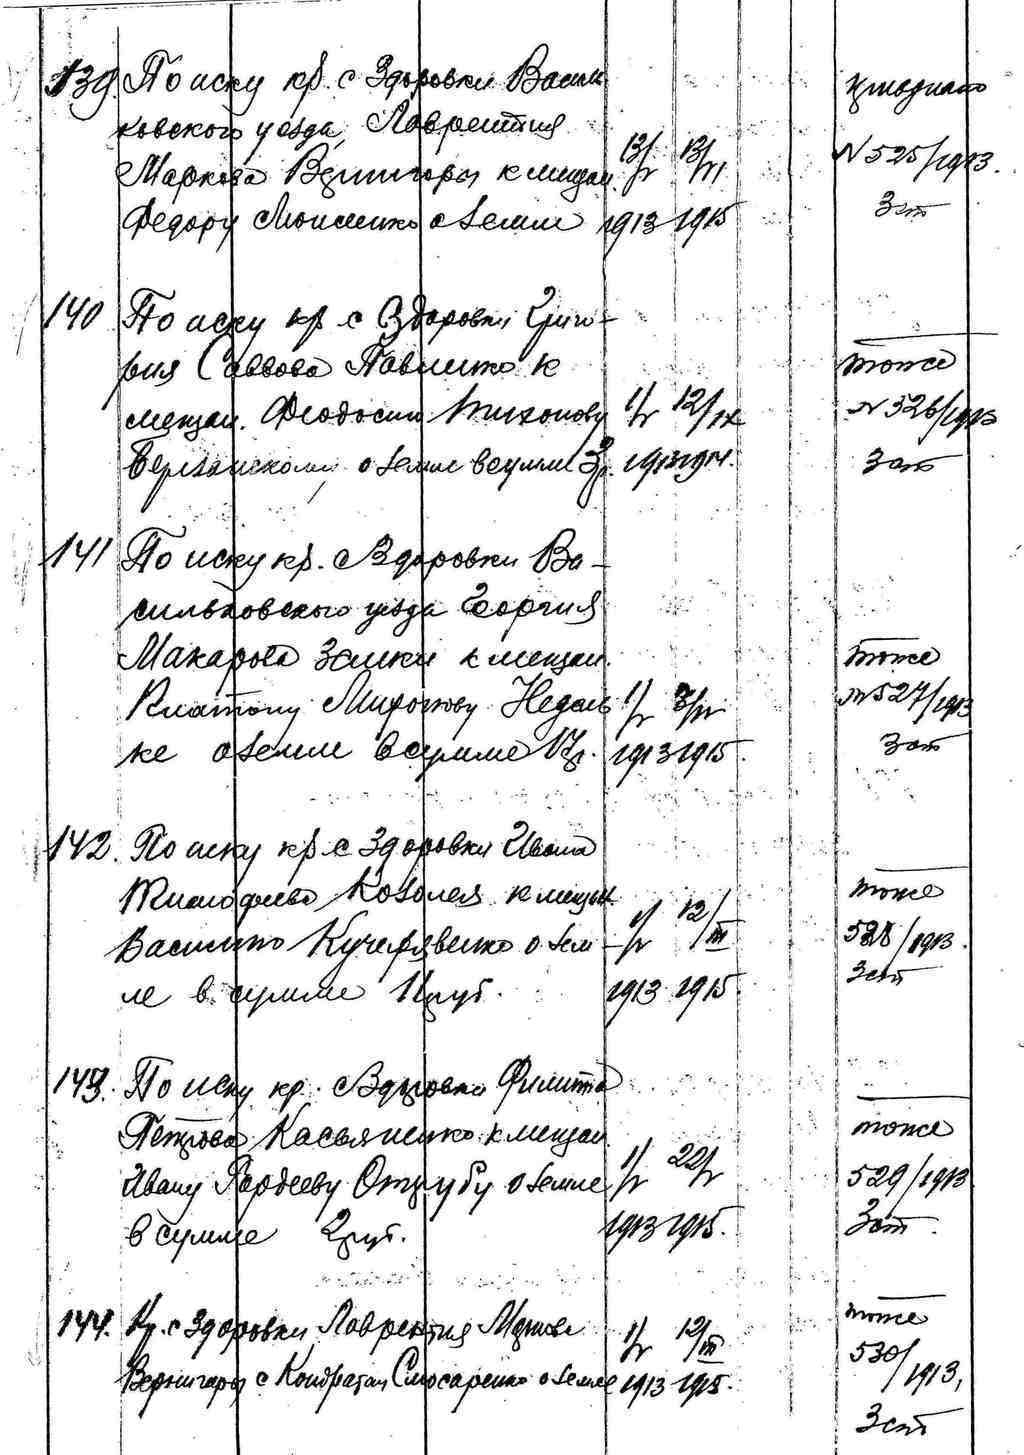 139. По иску кр. с Здоровки Василь
ковского уезда, Лаврентия
Маркова Вернигоры к мещан. 13/V 13/VI
Федору Моисенко о земле 1913 1915
N 525/1913.
3 ст
140 По иску кр с Здоровки Григо-
рия Саввова Павленко к
мещан. Феодосию Тихонову 1/V 12/IX
о земле в сумме 3 р. 1913 1914.
тоже
N 526/1913
3 ст
141 По иску кр. с Здоровки Ва-
сильковского уезда Георгия
Макарова Заики к мещан.
Платону Миронову Недель
ке о земле в сумме 1 1/2 р. 1913 1915.
тоже
N 527/1913
3 ст
142. По иску кр с Здоровки Ивана
Тимофеева Козолея к мещан
Василию Кучерявенко о зем- 1/V 12/III
ле в сумме 1 руб. 1913 1915.
тоже
528/1913.
3 ст
143. По иску кр. с Здоровки Филиппа
Петрова Касьяненко к мещан
Ивану Гордееву Отрубу о земле 1/V 22/V
в сумме 2 руб. 1913 1915.
тоже
529/1913
3 ст.
144. Кр. с Здоровки Лаврентия Маркова 1/V 12/III
Вернигоры с Кондратом Слюсаренко о земле 1913 1915.
тоже
530/1913,
3 ст